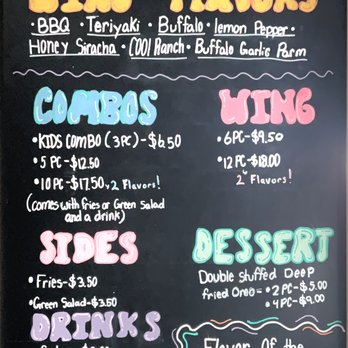 WING FLAVORS
• BBQ • Teriyaki • Buffalo • lemon Pepper •
Honey Siracha • COOl Ranch • Buffalo Garlic Parm
COMBOS
• KIDS COMBO (3PC)-$6.50
• 5 PC-$12.50
• 10 PC-$17.50 2 Flavors!
(comes with fries or Green Salad
and a drink)
WING
• 6PC-$9.50
• 12 PC-$18.00
2 Flavors!
SIDES
• Fries-$3.50
• Green Salad-$3.50
DESSERT
Double stuffed Deep
fried Oreo= • 2 PC-$5.00
• 4 PC-$9.00
DRINKS
Flavor Of the